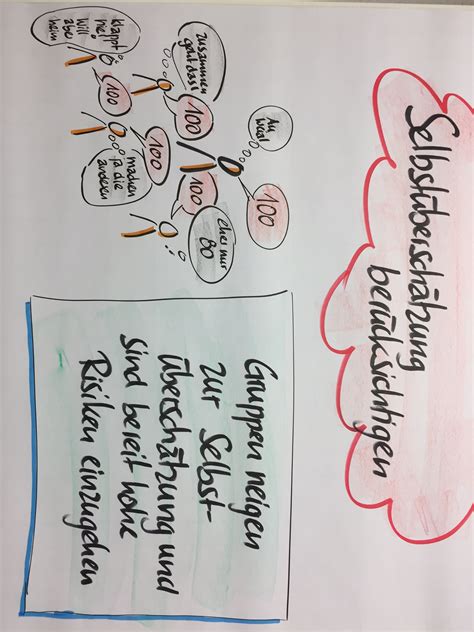 Selbstüberschätzung
berücksichtigen
100
Au
eher nur
80
100
100
zusammen
100
machen
ja die
anderen
100
klappt
nie!
Will
aber
heim
Gruppen neigen
zur Selbst-
überschätzung und
sind bereit hohe
Risiken einzugehen